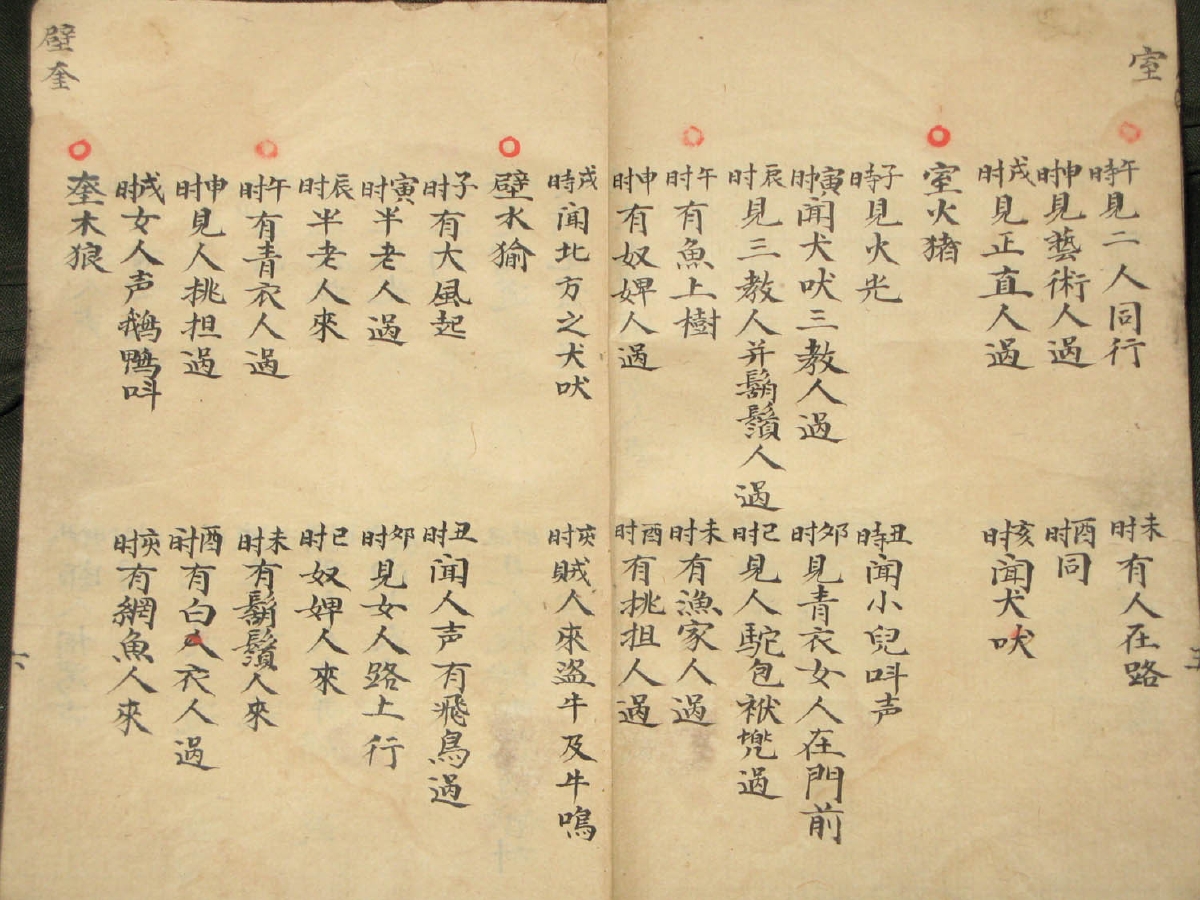 室
午时見二人同行
未时有人在路
申时見藝術人过
酉时同
戌时見正直人过
亥时闻犬吠
室火猪
子时見火光
丑时闻小兒呌声
寅时闻犬吠三教人过
卯时見青衣女人在門前
辰时見三教人并鬍鬚人过
巳时見人駝包袱兠过
午时有魚上樹
未时有漁家人过
申时有奴婢人过
酉时有挑担人过
戌时闻北方之犬吠
亥时贼人來盗牛及牛鳴
五
壁奎
壁水㺄
子时有大風起
丑时闻人声有飛鳥过
寅时半老人过
卯时見女人路上行
辰时半老人來
巳时奴婢人來
午时有青衣人过
未时有鬍鬚人來
申时見人挑担过
酉时有白人衣人过
戌时女人声鵝鴨呌
亥时有網魚人來
奎木狼
六